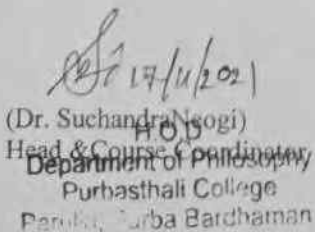 17/11/2021
(Dr. SuchandraNeogi)
H.O.D
Head & Course Coordinator
Department of Philosophy
Purbasthali College
Purba Bardhaman